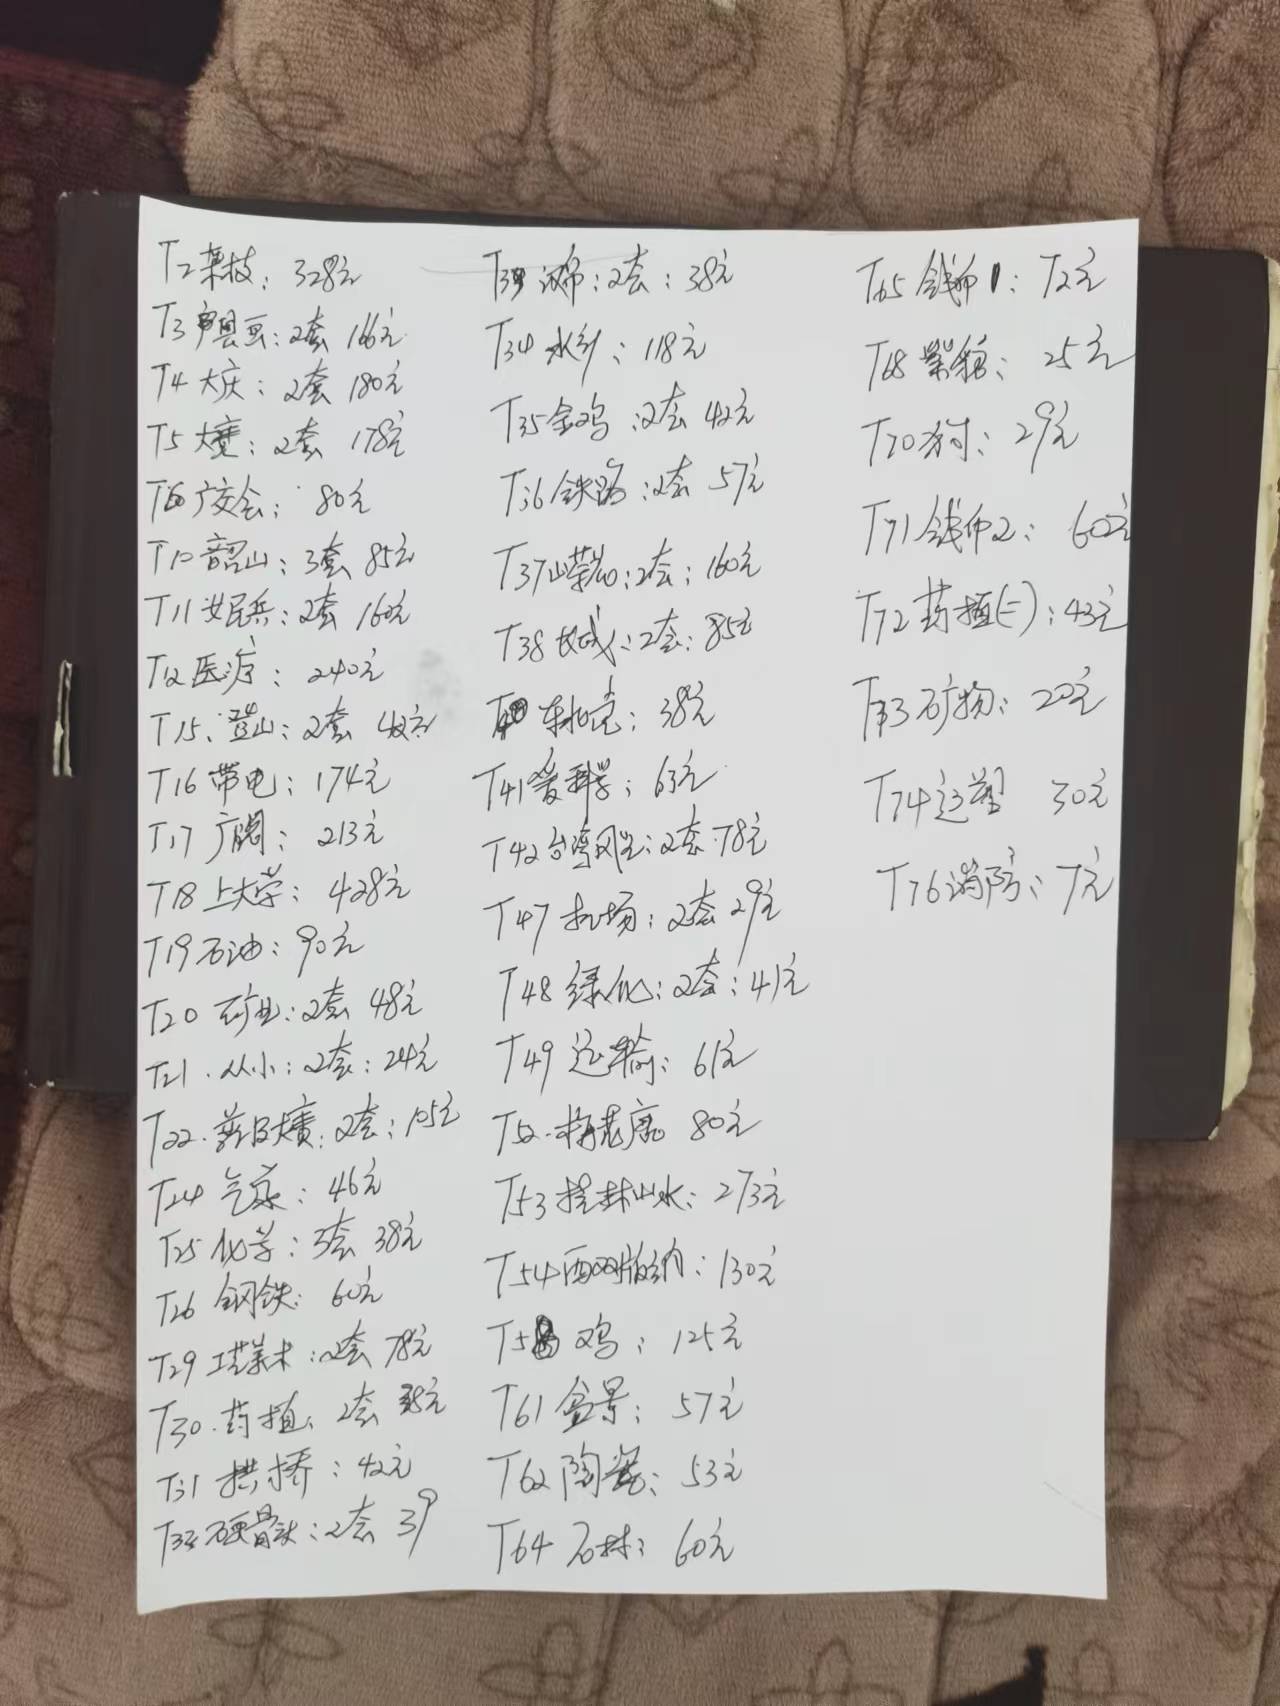 T2 架枝：328元
T3 户县画：2套 166元
T4 大庆：2套 180元
T5 大寨：2套 178元
T6 广交会：80元
T10 韶山：3套 85元
T11 女民兵：2套 160元
T12 医疗：240元
T15、登山：2套 42元
T16 带电：174元
T17 广阔：213元
T18 上大学：428元
T19 石油：90元
T20 矿业：2套 48元
T21．从小：2套：24元
T22．普及大寨：2套：105元
T24 气象：46元
T25 化学：3套 38元
T26 钢铁：60元
T29 工艺美术：2套 78元
T30．药植：2套 38元
T31 拱桥：42元
硬骨头：2套 39
：2套：38元
T34 水乡：118元
T35 金鸡：2套 42元
T36 铁路：2套 57元
T37 山茶花：2套：160元
T38 长城：2套：85元
：38元
T41 爱科学：63元
T42 台湾风光：2套 78元
T47 机场：2套 29元
T48 绿化：2套：41元
T49 运输：61元
T52．梅花鹿 80元
T53 桂林山水：273元
T54 西双版纳：130元
T58 鸡：125元
T61 盆景：57元
T62 陶瓷：53元
T64 石林：60元
T65 钱币1：72元
T68 紫貂：25元
T70 木刻：29元
T71 钱币2：60元
T72 药植(二)：43元
T73 矿物：20元
T74 辽塑 30元
T76 消防：7元